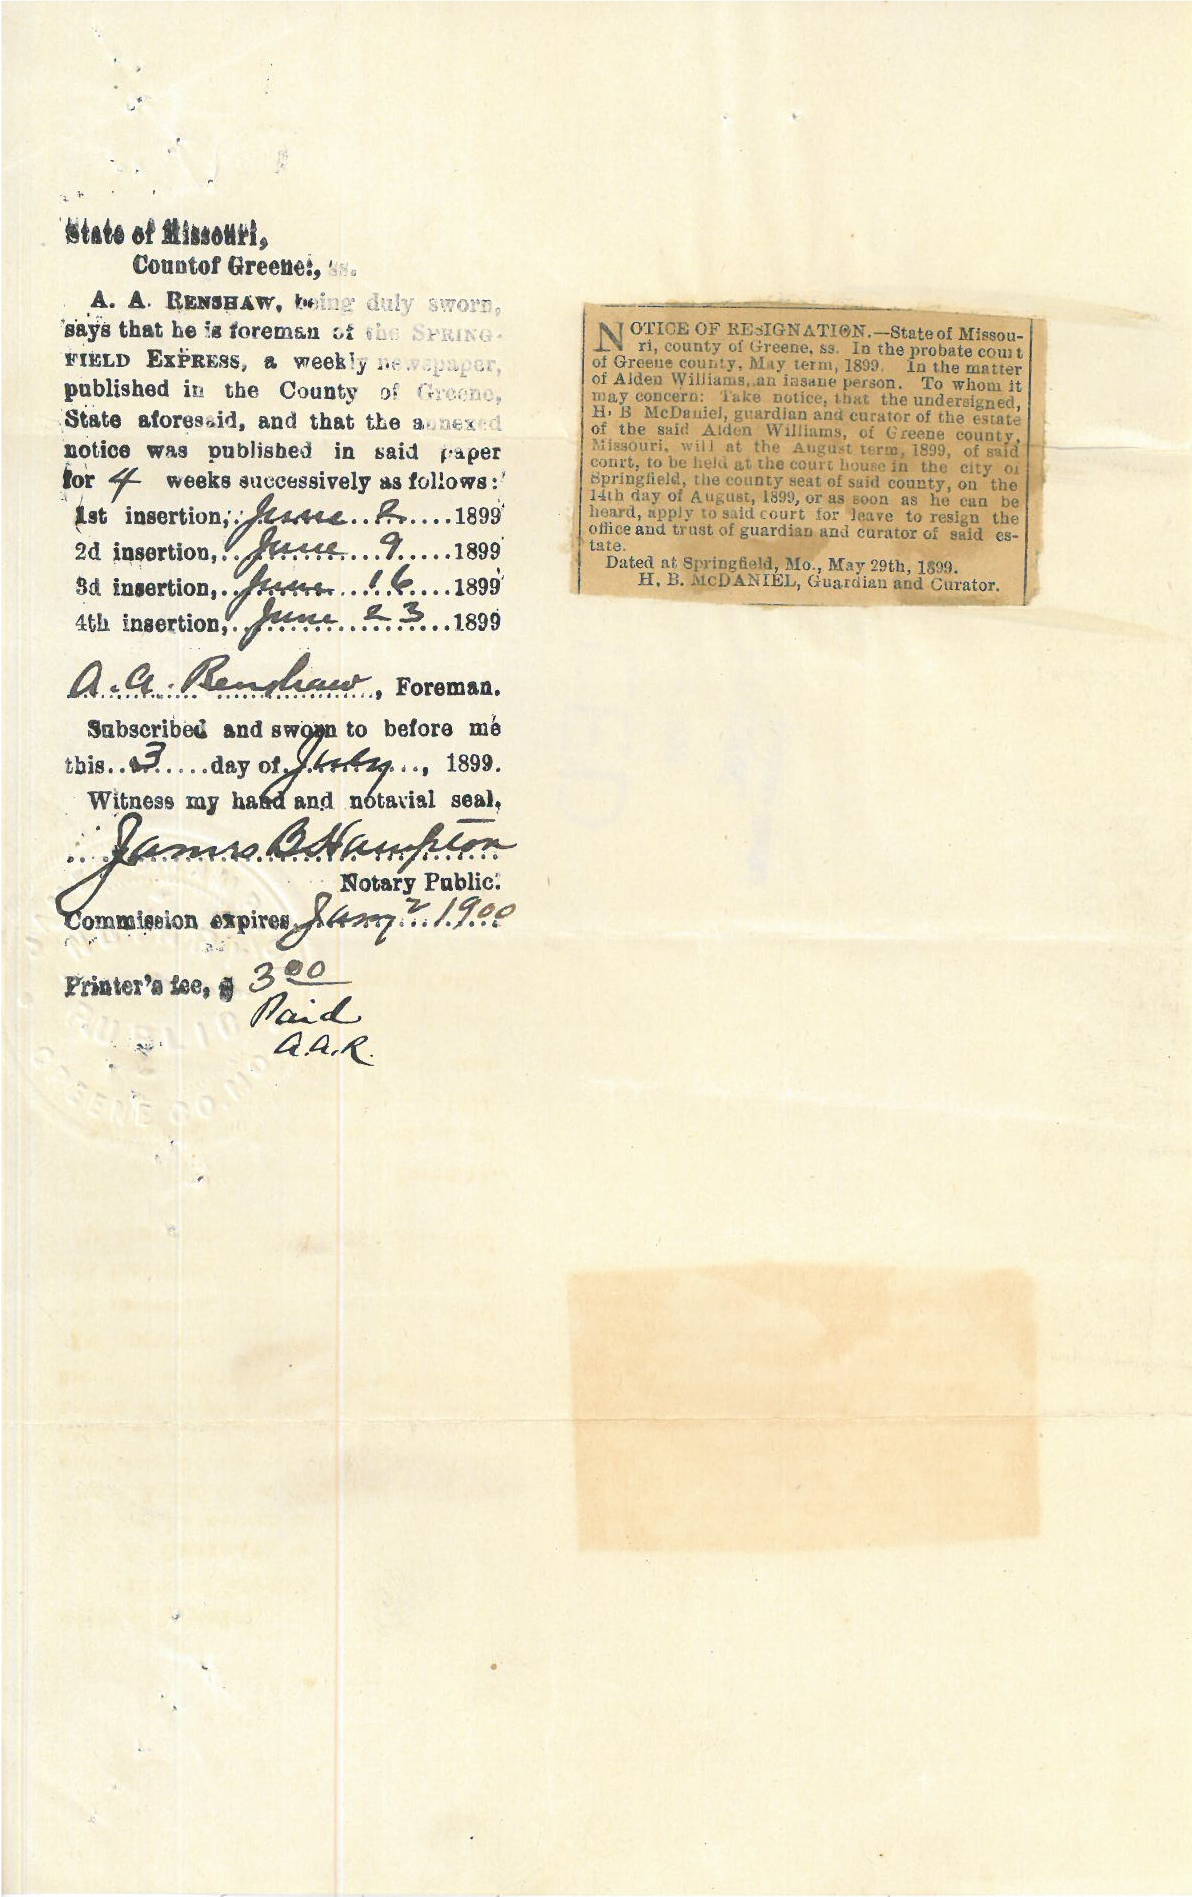 State of Missouri,
Countof Greene:, ss.
A. A. RENSHAW, being duly sworn,
says that he is foreman of the SPRING-
FIELD EXPRESS, a weekly newspaper,
published in the County of Greene,
State aforesaid, and that the annexed
notice was published in said paper
for 4 weeks successively as follows:
1st insertion, June 2 1899
2d insertion, June 9 1899
3d insertion, June 16 1899
4th insertion, June 23 1899
A. A. Renshaw, Foreman.
Subscribed and sworn to before me
this 3 day of July, 1899.
Witness my hand and notarial seal,
James B Hampton
Notary Public.
Commission expires Jany 2 1900
Printer's fee, $ 3 00
Paid
A.A.R.
GREENE CO. MO.
NOTICE OF RESIGNATION.—State of Missou-
ri, county of Greene, ss. In the probate court
of Greene county, May term, 1899. In the matter
of Alden Williams, an insane person. To whom it
may concern: Take notice, that the undersigned,
H. B McDaniel, guardian and curator of the estate
of the said Alden Williams, of Greene county,
Missouri, will at the August term, 1899, of said
conrt, to be held at the court house in the city of
Springfield, the county seat of said county, on the
14th day of August, 1899, or as soon as he can be
heard, apply to said court for leave to resign the
office and trust of guardian and curator of said es-
tate.
Dated at Springfield, Mo., May 29th, 1899.
H. B. McDANIEL, Guardian and Curator.